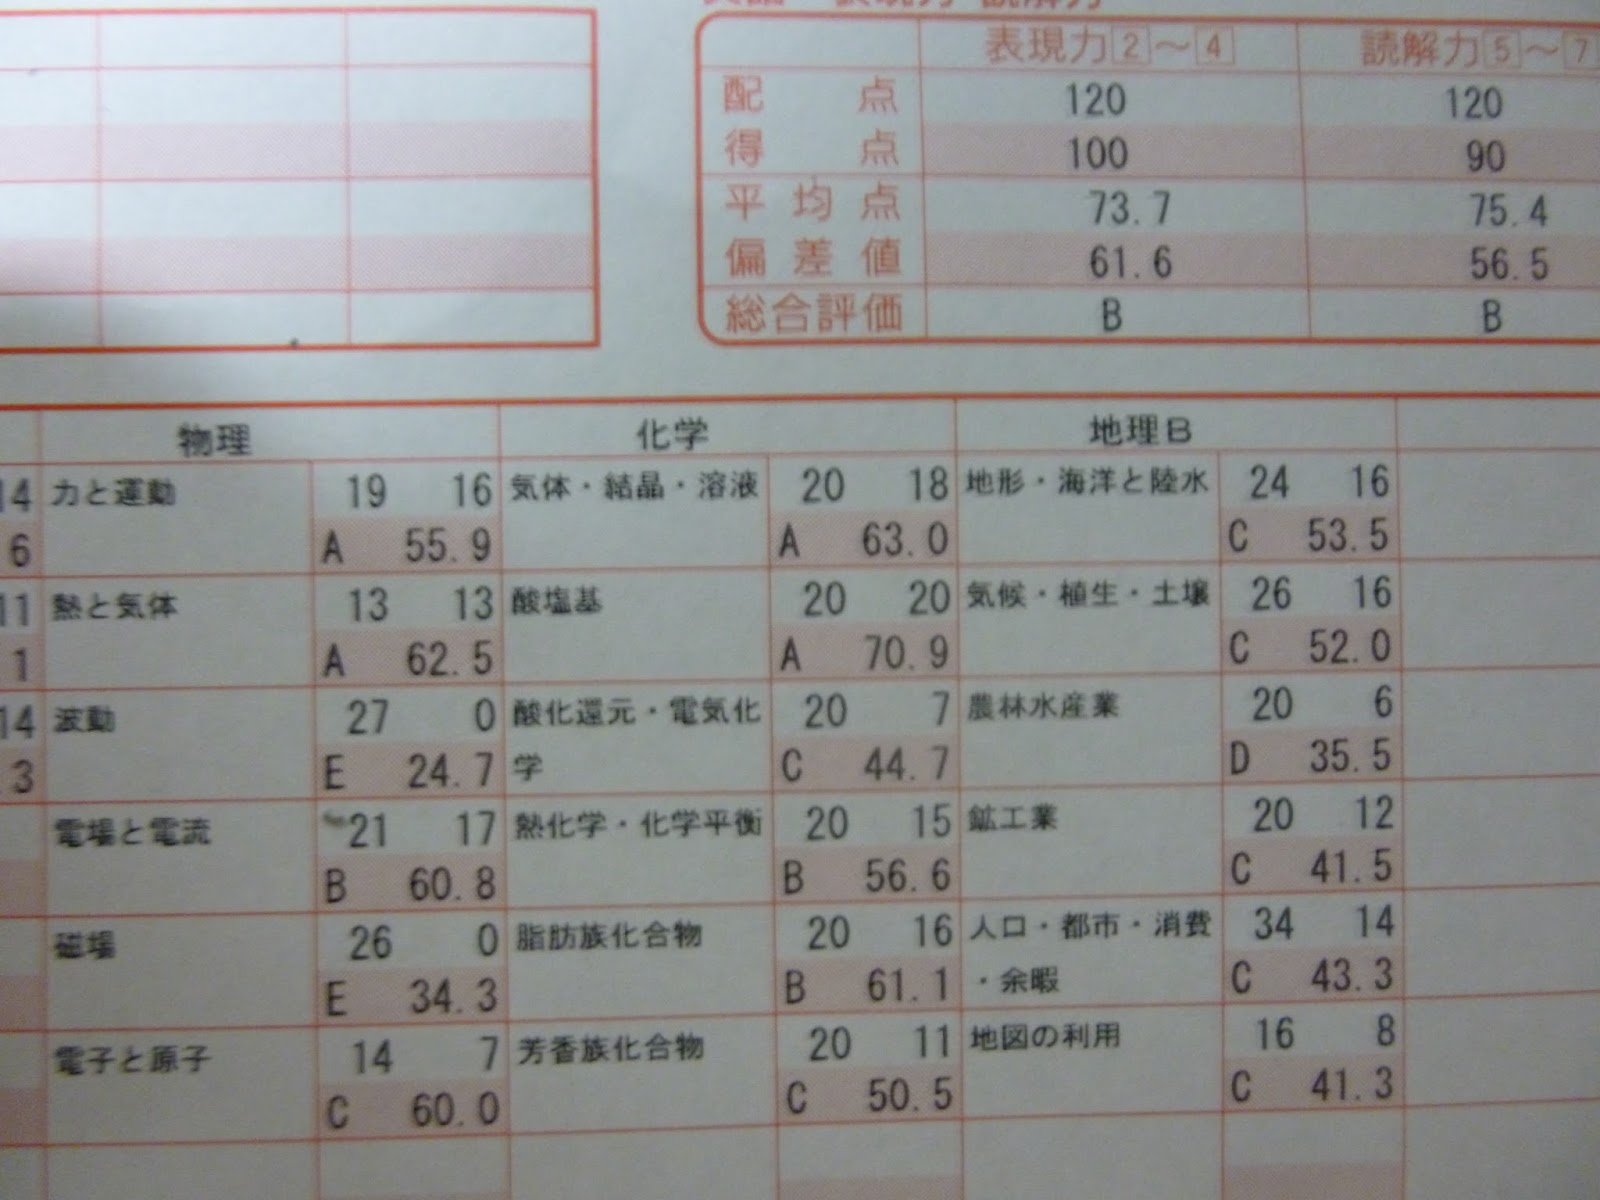 表現力2～4 読解力5～7
配点 120 120
得点 100 90
平均点 73.7 75.4
偏差値 61.6 56.5
総合評価 B B
物理 化学 地理B
14 力と運動 19 16 気体・結晶・溶液 20 18 地形・海洋と陸水 24 16
6 A 55.9 A 63.0 C 53.5
11 熱と気体 13 13 酸塩基 20 20 気候・植生・土壌 26 16
1 A 62.5 A 70.9 C 52.0
14 波動 27 0 酸化還元・電気化 20 7 農林水産業 20 6
3 E 24.7 学 C 44.7 D 35.5
電場と電流 21 17 熱化学・化学平衡 20 15 鉱工業 20 12
B 60.8 B 56.6 C 41.5
磁場 26 0 脂肪族化合物 20 16 人口・都市・消費 34 14
E 34.3 B 61.1 ・余暇 C 43.3
電子と原子 14 7 芳香族化合物 20 11 地図の利用 16 8
C 60.0 C 50.5 C 41.3